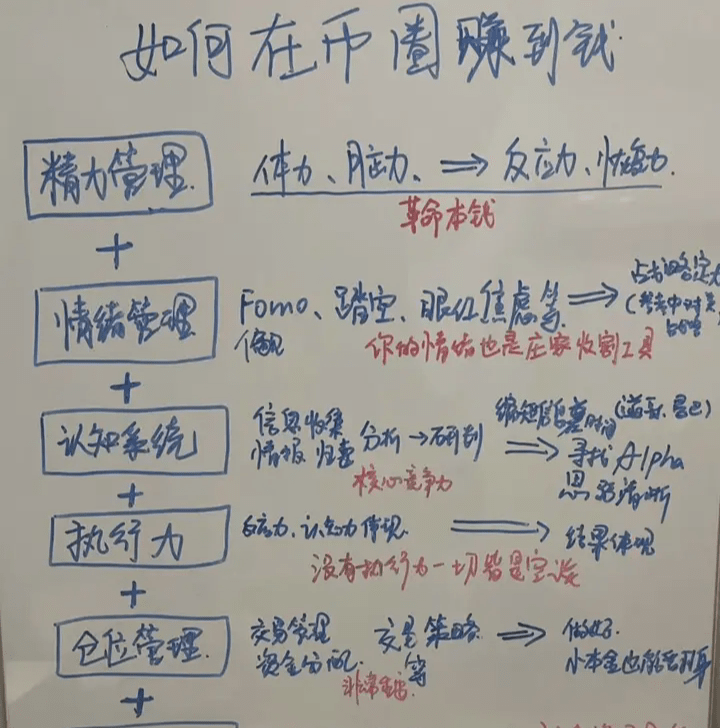 如何在币圈赚到钱
精力管理 体力、脑力、⇒ 反应力、恢复力.
革命本钱
+
情绪管理 Fomo、踏空、眼红焦虑等 ⇒
偏见
你的情绪也是庄家收割工具
+
认知系统 信息收集 分析→研判 ⇒ 寻找Alpha
情报 归集 思路清晰
核心竞争力
+
执行力 反应力、认知力体现 ⇒ 结果体现
没有执行力一切皆是空谈
+
仓位管理. 交易管理 交易策略 ⇒ 做好.
资金分配. 等 小本金也能翻身
非常重要.
+